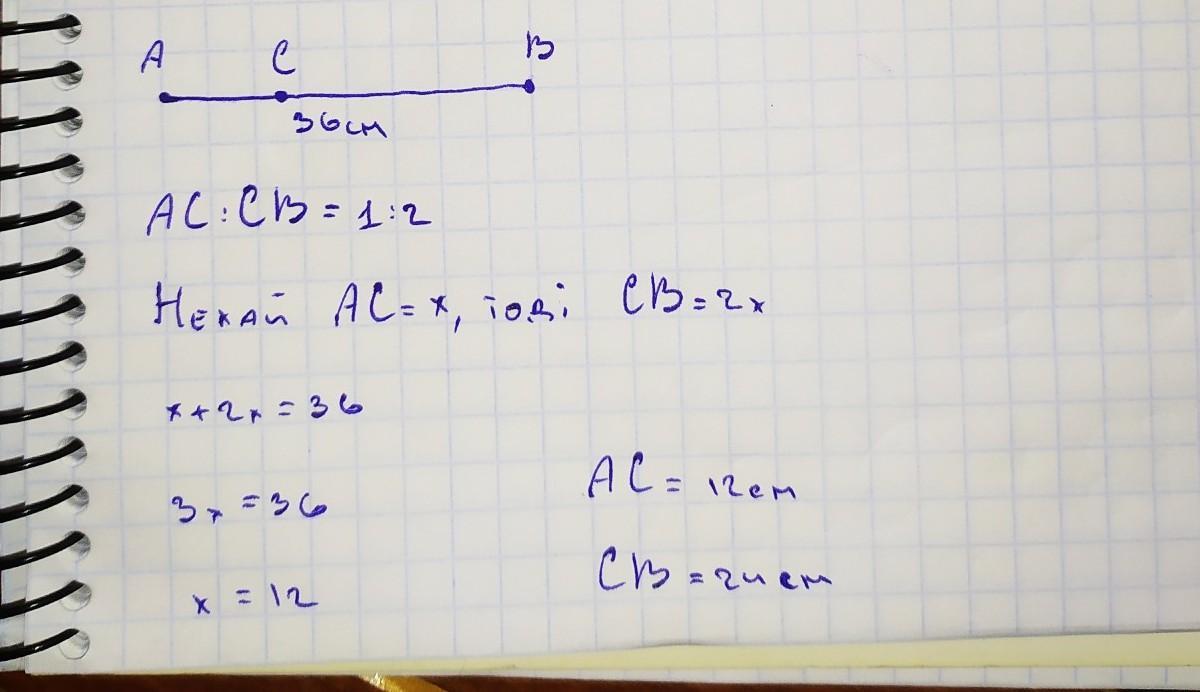 A C B
36см
AC:CB = 1:2
Нехай AC = x, тоді CB = 2x
x + 2x = 36
3x = 36
AC = 12см
x = 12
CB = 24см